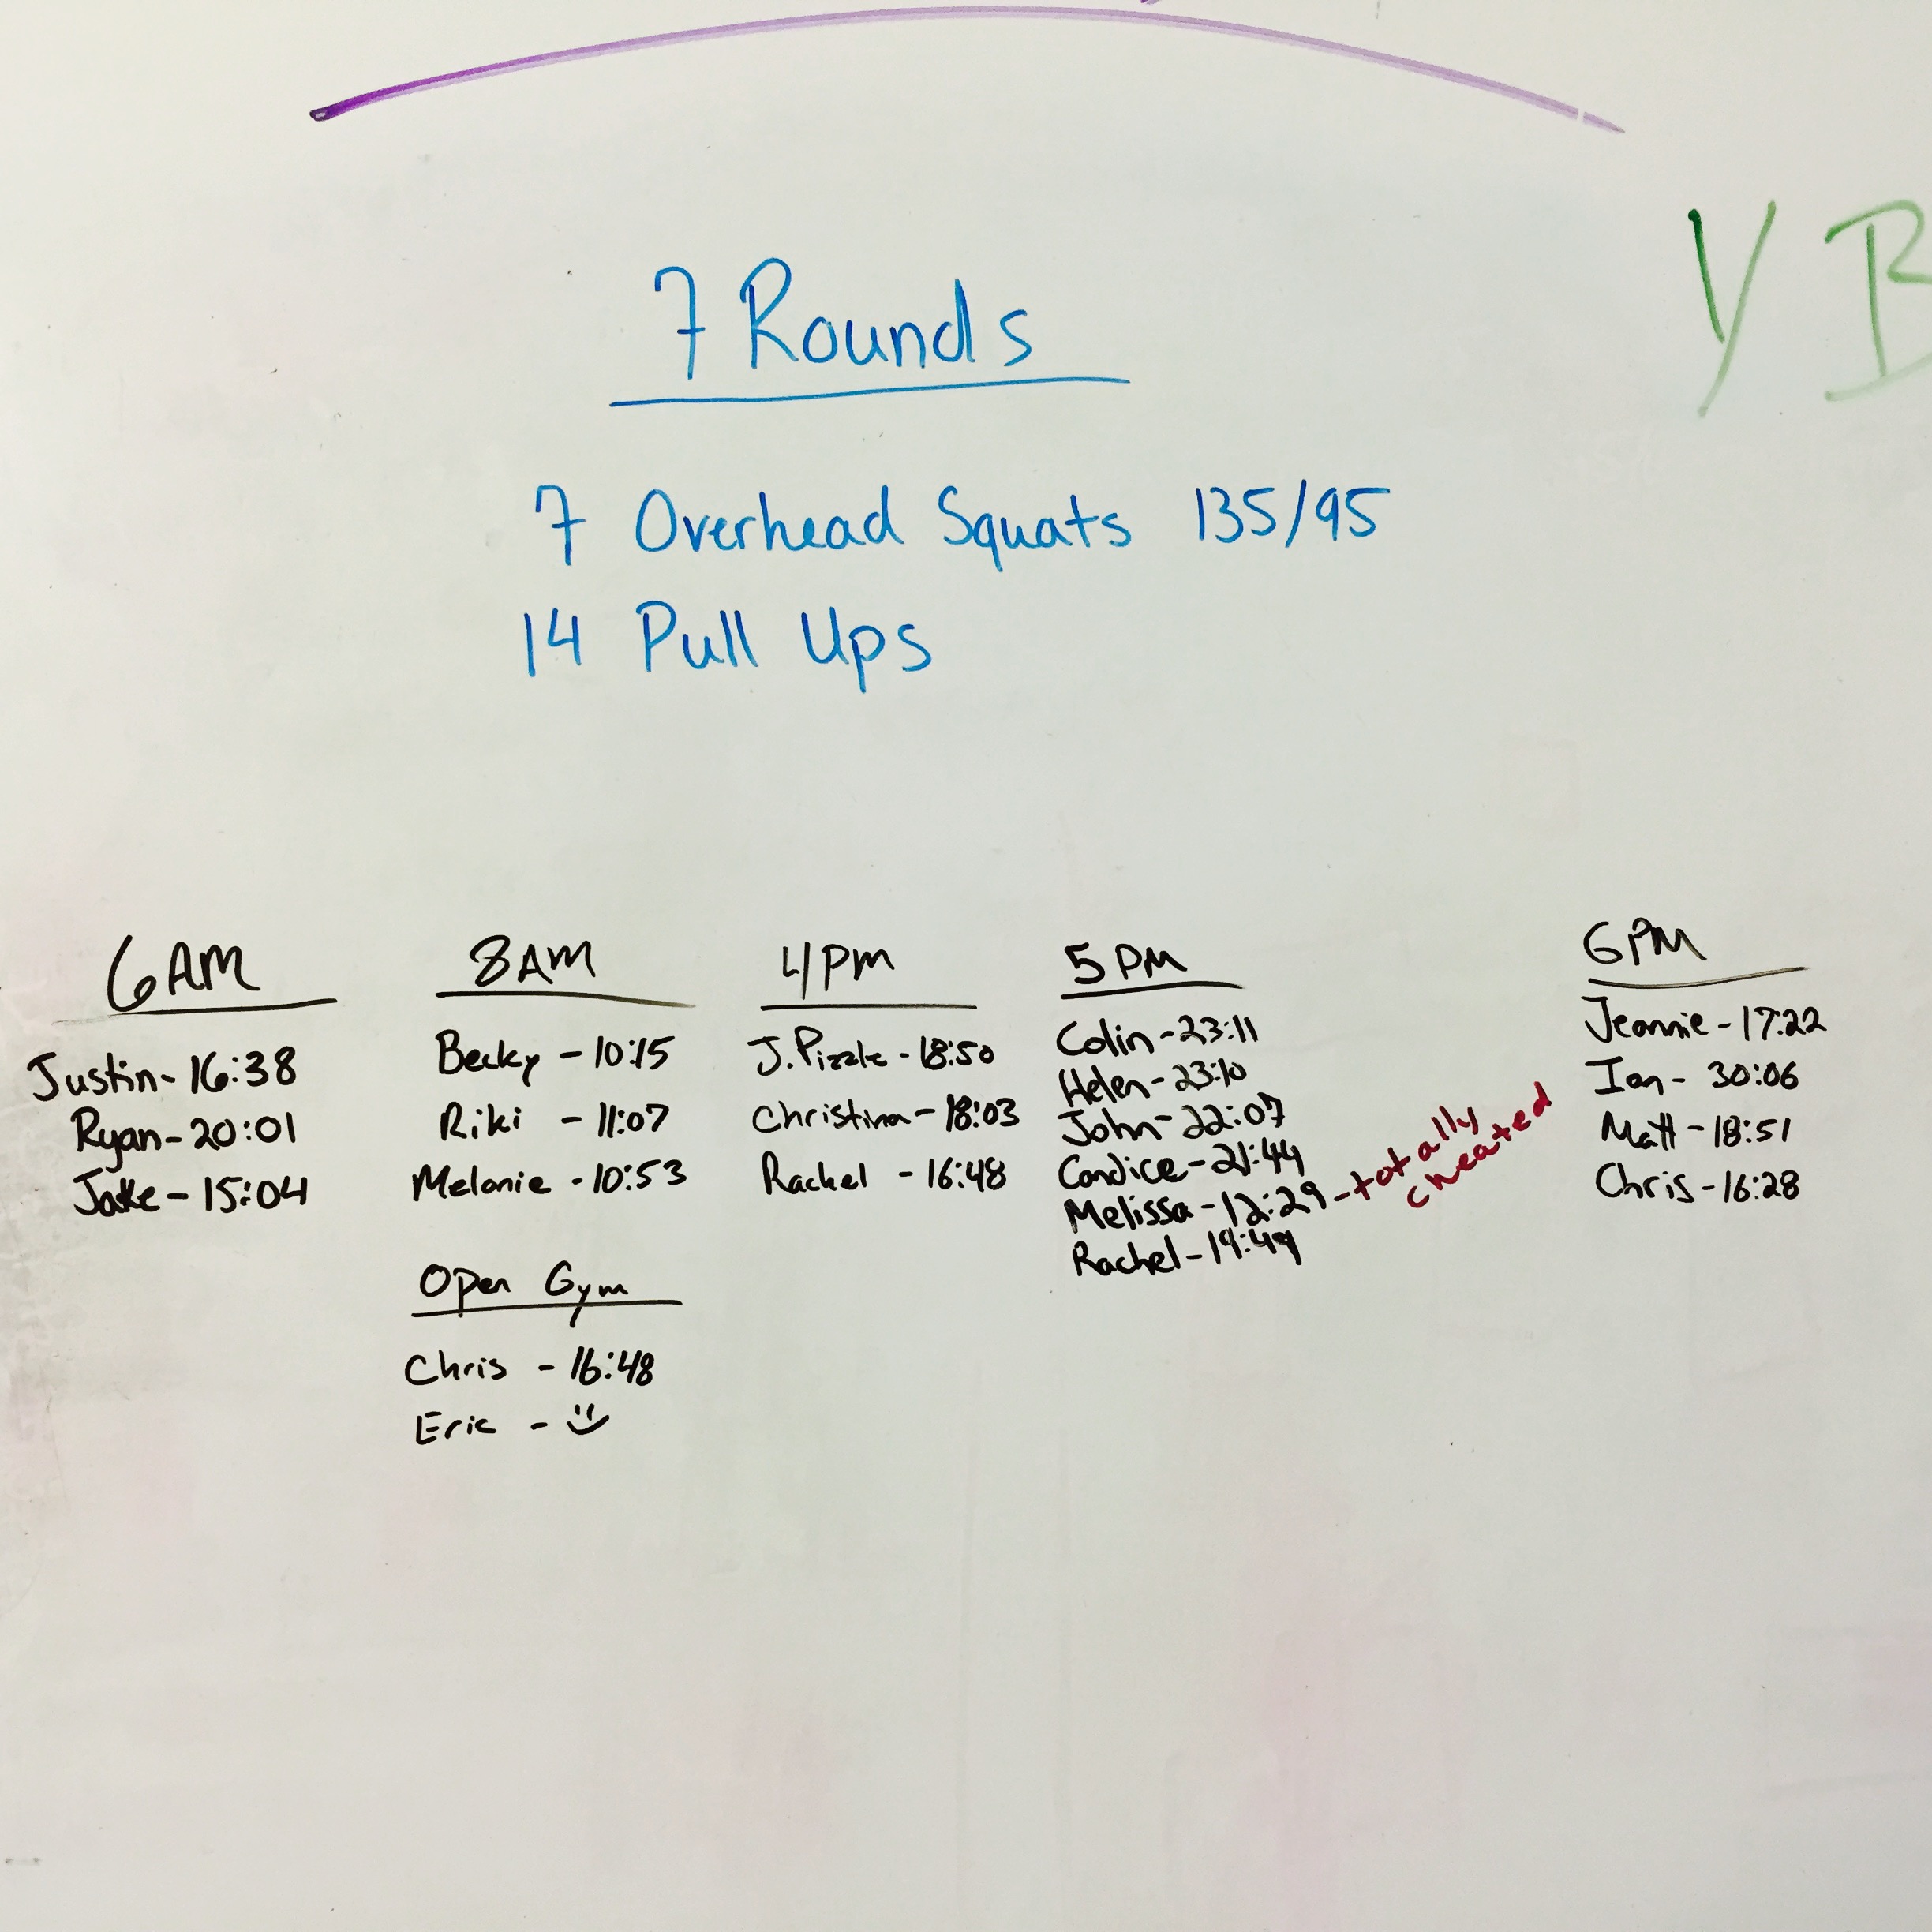 7 Rounds
7 Overhead Squats 135/95
14 Pull Ups
Y B
6AM
Justin - 16:38
Ryan - 20:01
Jake - 15:04
8AM
Becky - 10:15
Riki - 11:07
Melanie - 10:53
Open Gym
Chris - 16:48
Eric -
4PM
J. Pizzle - 18:50
Christina - 18:03
Rachel - 16:48
5PM
Colin - 23:11
Helen - 23:10
John - 22:07
Candice - 21:44
Melissa - 12:29 - totally
cheated
Rachel - 19:49
6PM
Jeannie - 17:22
Ian - 30:06
Matt - 18:51
Chris - 16:28